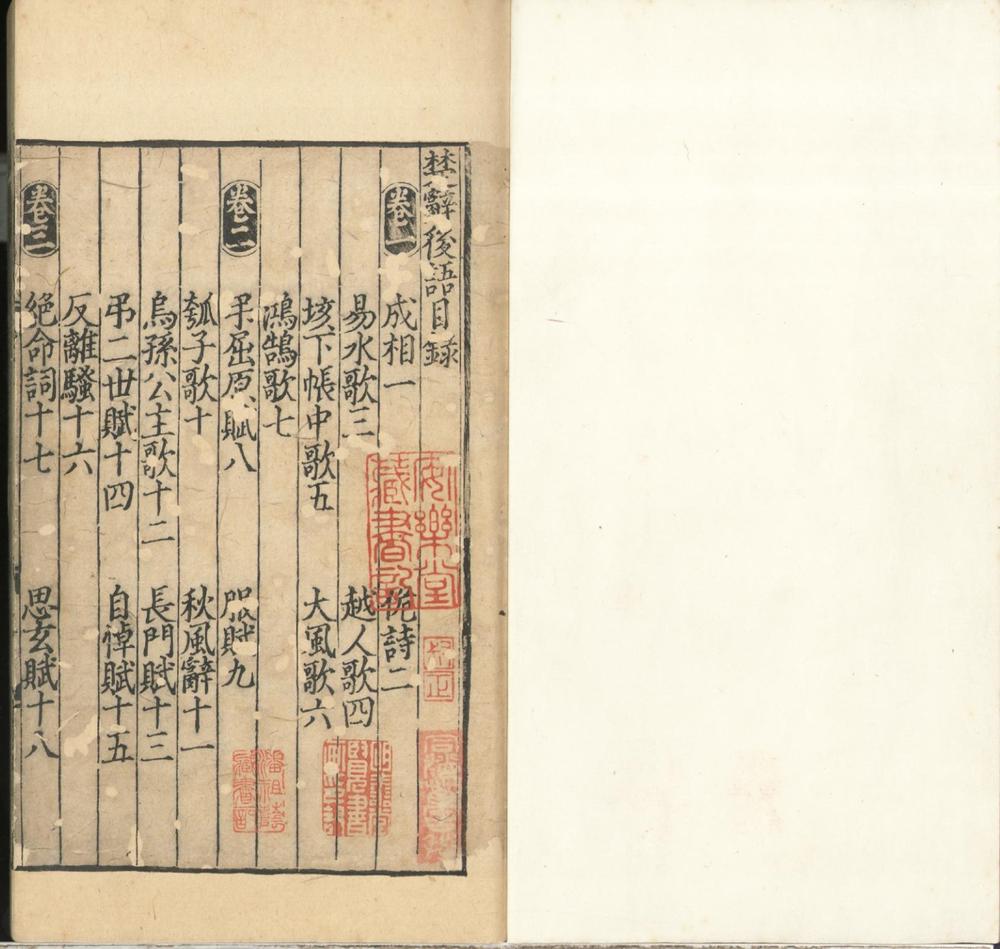 楚辭後語目錄
卷一
成相一 佹詩二
易水歌三 越人歌四
垓下帳中歌五 大風歌六
鴻鵠歌七
卷二
弔屈原賦八 服賦九
瓠子歌十 秋風辭十一
烏孫公主歌十二 長門賦十三
弔二世賦十四 自悼賦十五
反離騷十六
卷三
絕命詞十七 思玄賦十八
藏書印